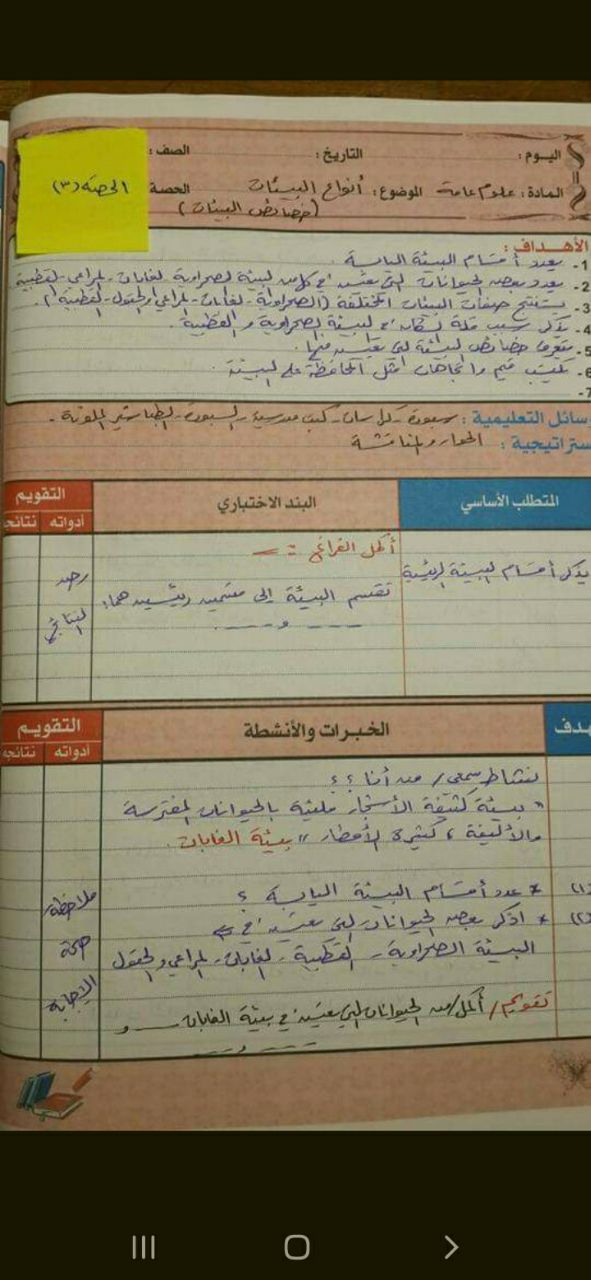 اليوم : التاريخ : الصف :
المادة : علوم عامة الموضوع : أنواع البيئات الحصة
(خصائص البيئات)
الحصة (٣)
الأهداف :
1- يعدد أقسام البيئة اليابسة .
2- يعدد بعض الحيوانات التي تعيش في كل من البيئة الصحراوية - الغابات - المراعي - القطبية
3- يستنتج صفات البيئات المختلفة (الصحراوية - الغابات - المراعي والحقول - القطبية) .
4- يذكر سبب قلة السكان في البيئة الصحراوية و القطبية .
5- يتعرف خصائص البيئة التي يعيش فيها .
6- يكتسب قيم واتجاهات مثل المحافظة على البيئة .
7-
وسائل التعليمية : سبورة - كتاب مدرسي - السبورة - الطباشير الملونة .
ستراتيجية : الحوار والمناقشة
المتطلب الأساسي البند الاختباري التقويم
أدواته نتائجه
يذكر أقسام البيئة الرئيسية
أكمل الفراغ :-
تقسم البيئة إلى قسمين رئيسيين هما :
--- و ---
رصد
النتائج
هدف الخبرات والأنشطة التقويم
أدواته نتائجه
نشاط سمعي / من أنا ؟ ؟
" بيئة كثيفة الأشجار مليئة بالحيوانات المفترسة
والأليفة ، كثيرة الأمطار " بيئة الغابات .
(1) * عدد أقسام البيئة اليابسة ؟
(2) * اذكر بعض الحيوانات التي تعيش في
البيئة الصحراوية - القطبية - الغابات - المراعي والحقول
تقويم / أكمل / من الحيوانات التي تعيش في بيئة الغابات --- و
--- و ---
ملاحظة
صحة
الإجابة